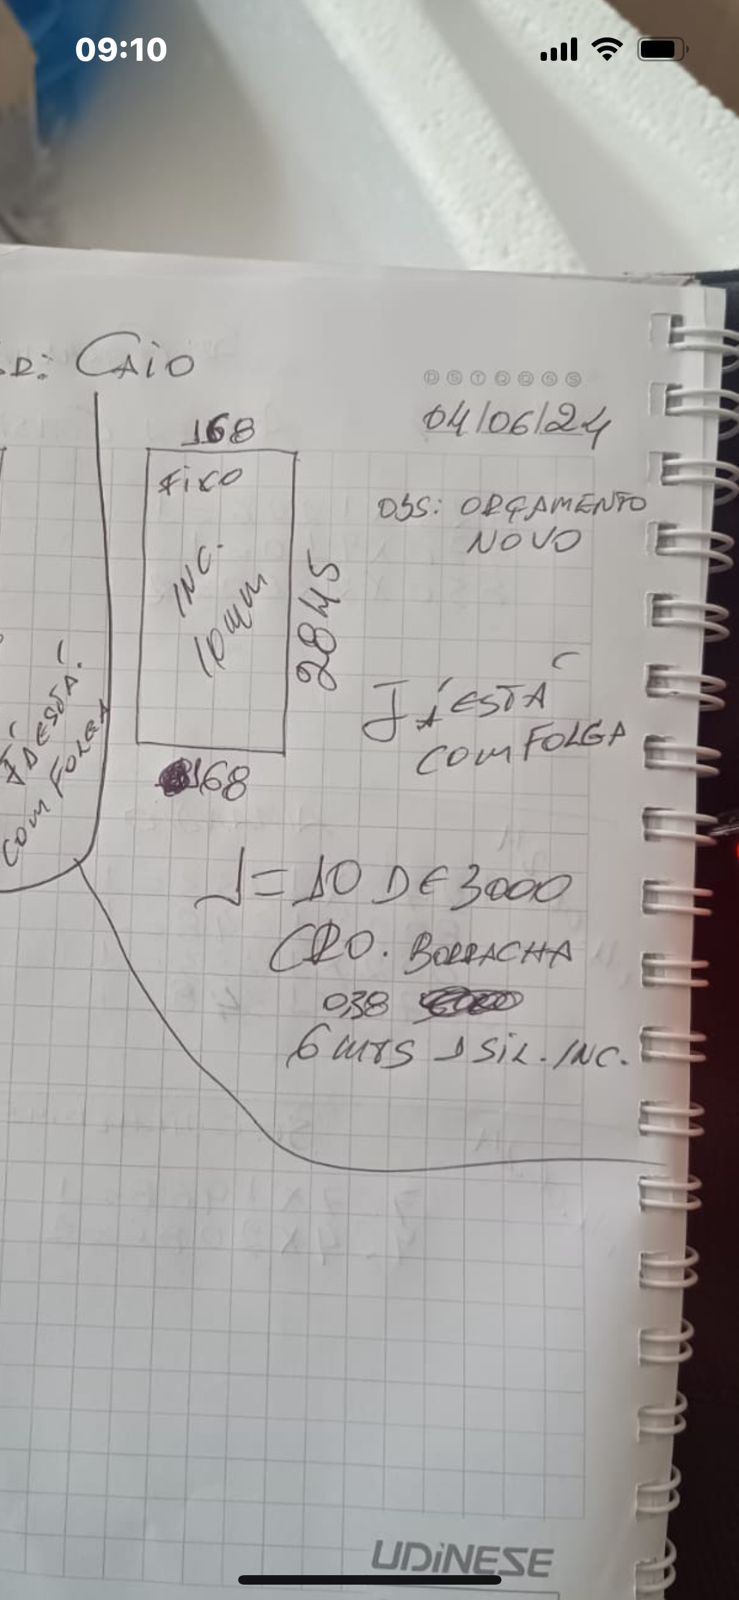 09:10
R: CAIO
D S T Q Q S S
04/06/24
168
FIXO
OBS: ORÇAMENTO
NOVO
INC.
10mm
2845
JÁ ESTÁ
COM FOLGA
JÁ ESTÁ
COM FOLGA
168
1=10 DE 3000
CRO. BORRACHA
038
6 MTS 1 SIL. INC.
UDiNESE